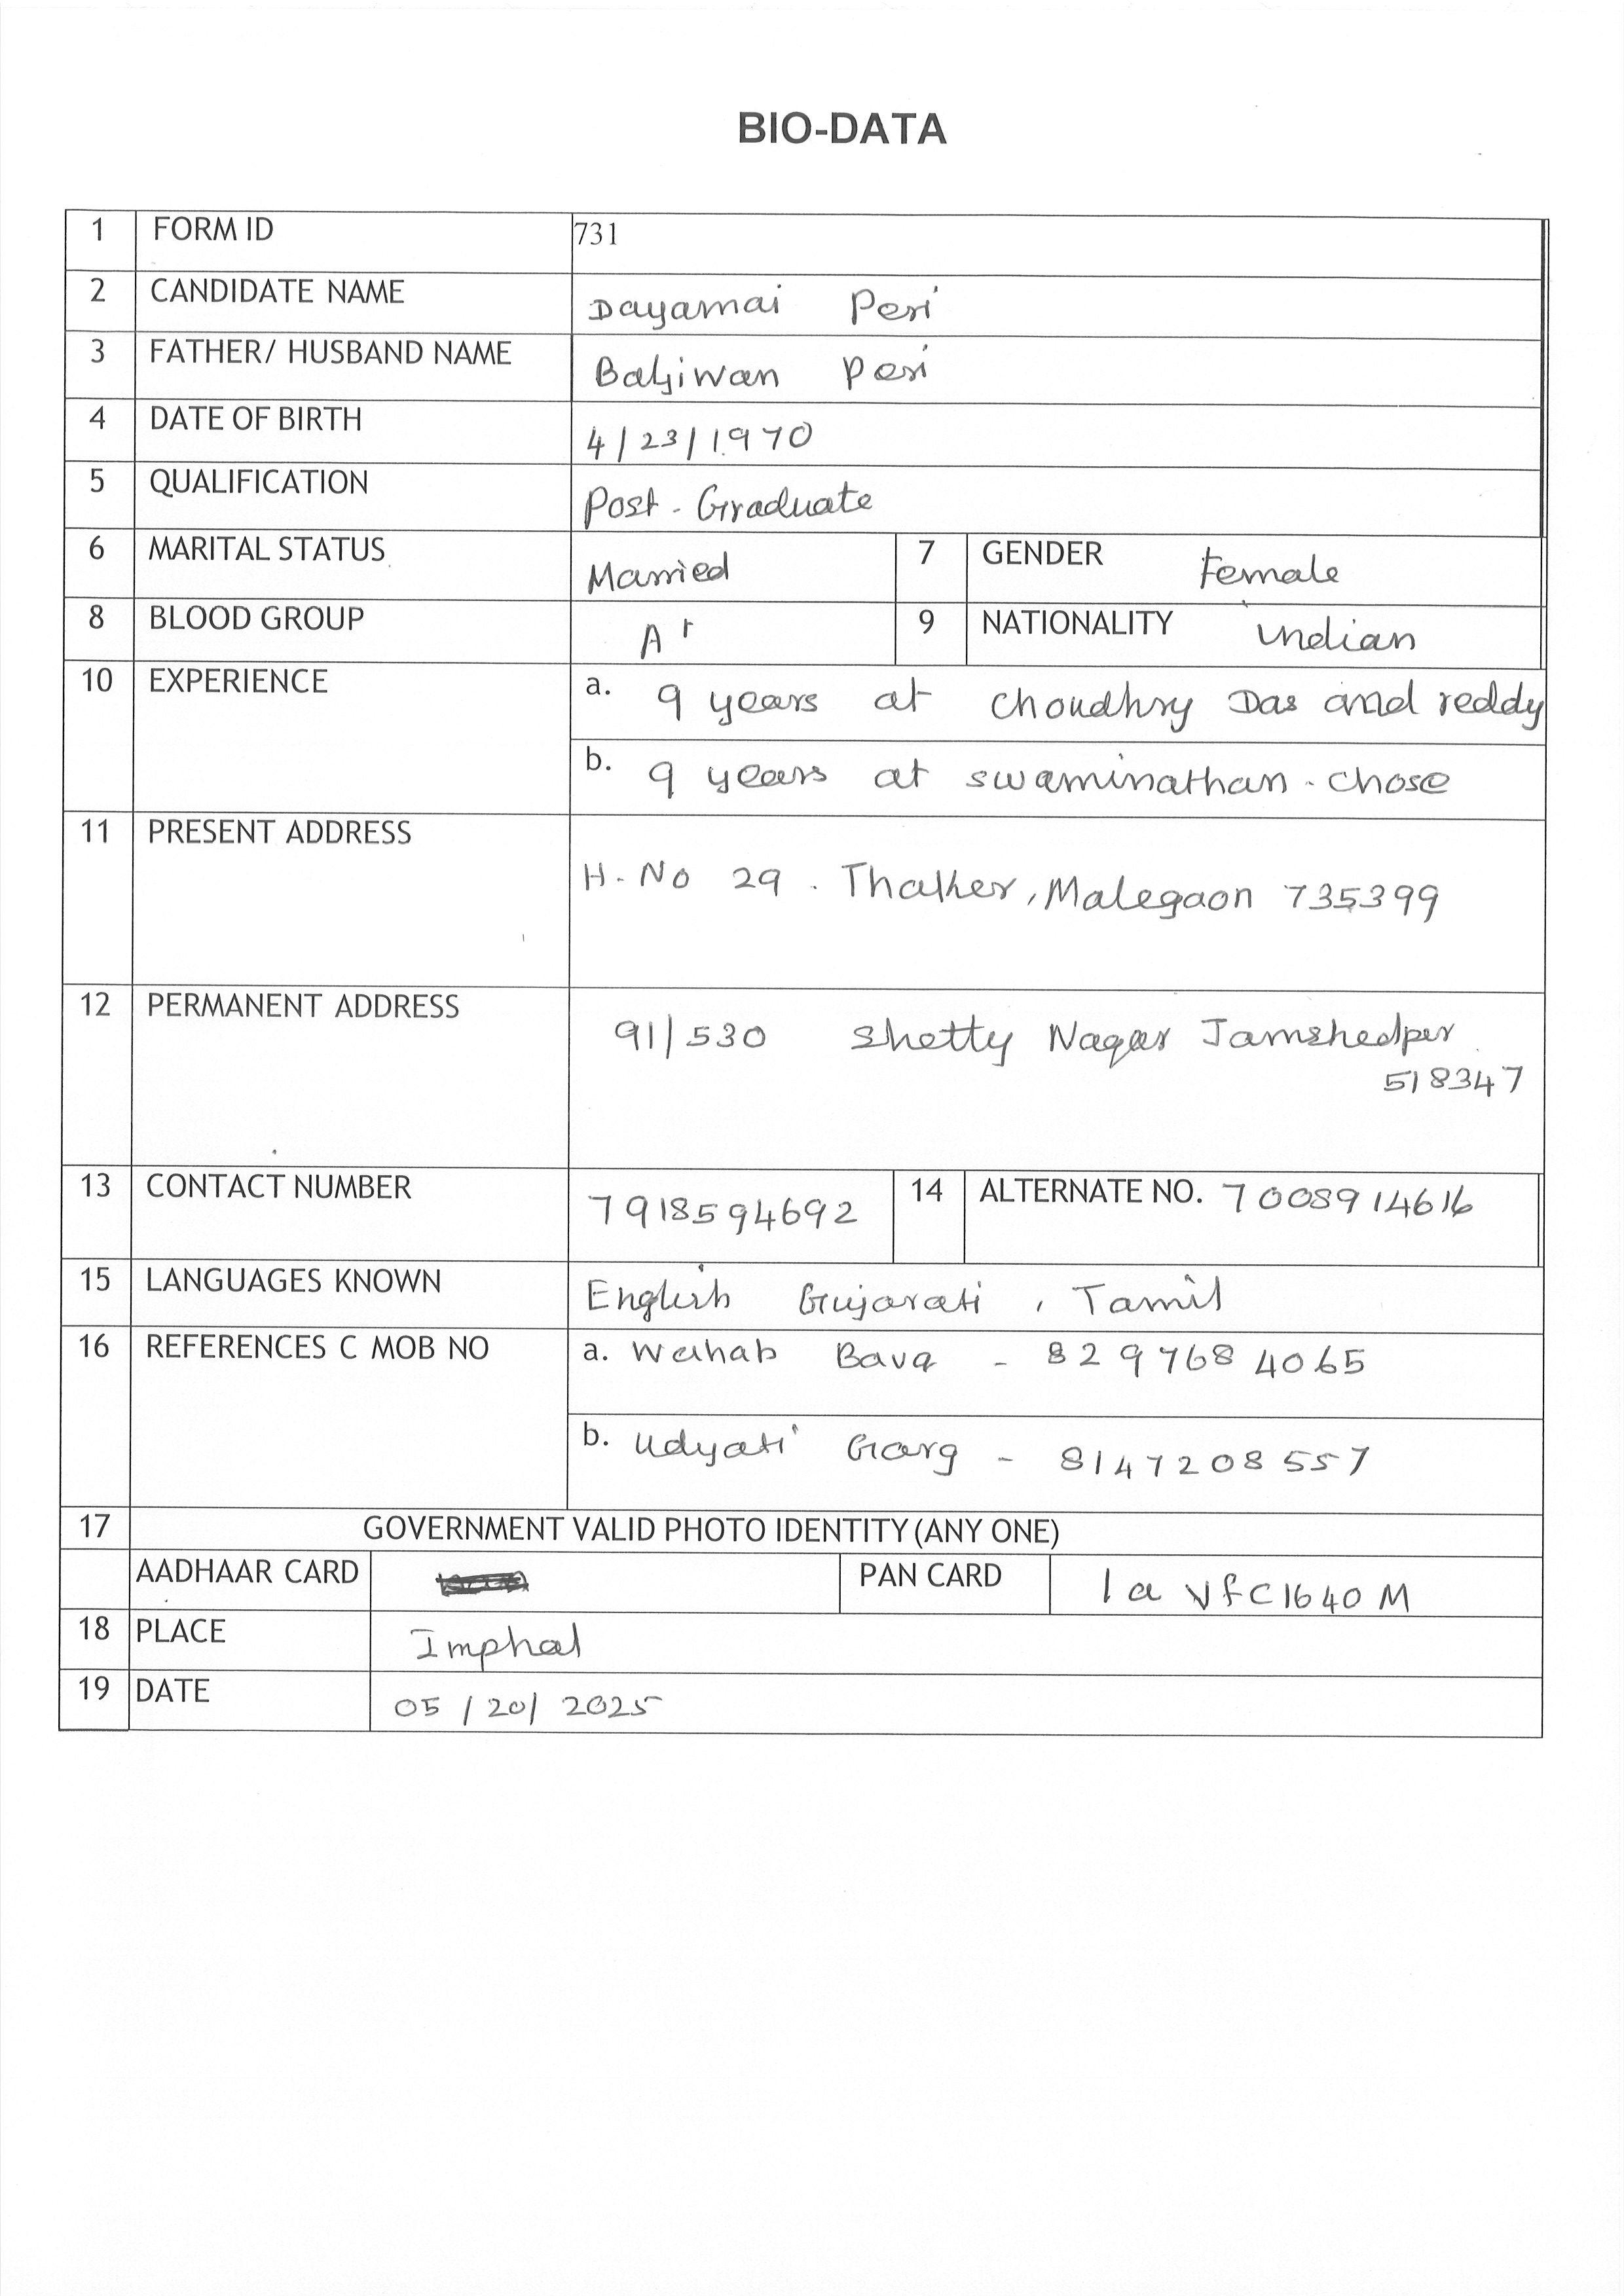 BIO-DATA
1 FORM ID 731
2 CANDIDATE NAME Dayamai Peri
3 FATHER/ HUSBAND NAME Baljiwan Peri
4 DATE OF BIRTH 4/23/1970
5 QUALIFICATION Post - Graduate
6 MARITAL STATUS Married 7 GENDER Female
8 BLOOD GROUP A+ 9 NATIONALITY indian
10 EXPERIENCE a. 9 years at Choudhry Das and reddy
b. 9 years at swaminathan - Chose
11 PRESENT ADDRESS H-No 29 . Thakker, Malegaon 735399
12 PERMANENT ADDRESS 91/530 Shetty Nagar Jamshedper
518347
13 CONTACT NUMBER 7918594692 14 ALTERNATE NO. 7008914616
15 LANGUAGES KNOWN English Gujarati , Tamil
16 REFERENCES C MOB NO a. Wahab Bava - 8297684065
b. Udyati Garg - 8147208557
17 GOVERNMENT VALID PHOTO IDENTITY(ANY ONE)
AADHAAR CARD PAN CARD lavfC1640M
18 PLACE Imphal
19 DATE 05/20/2025